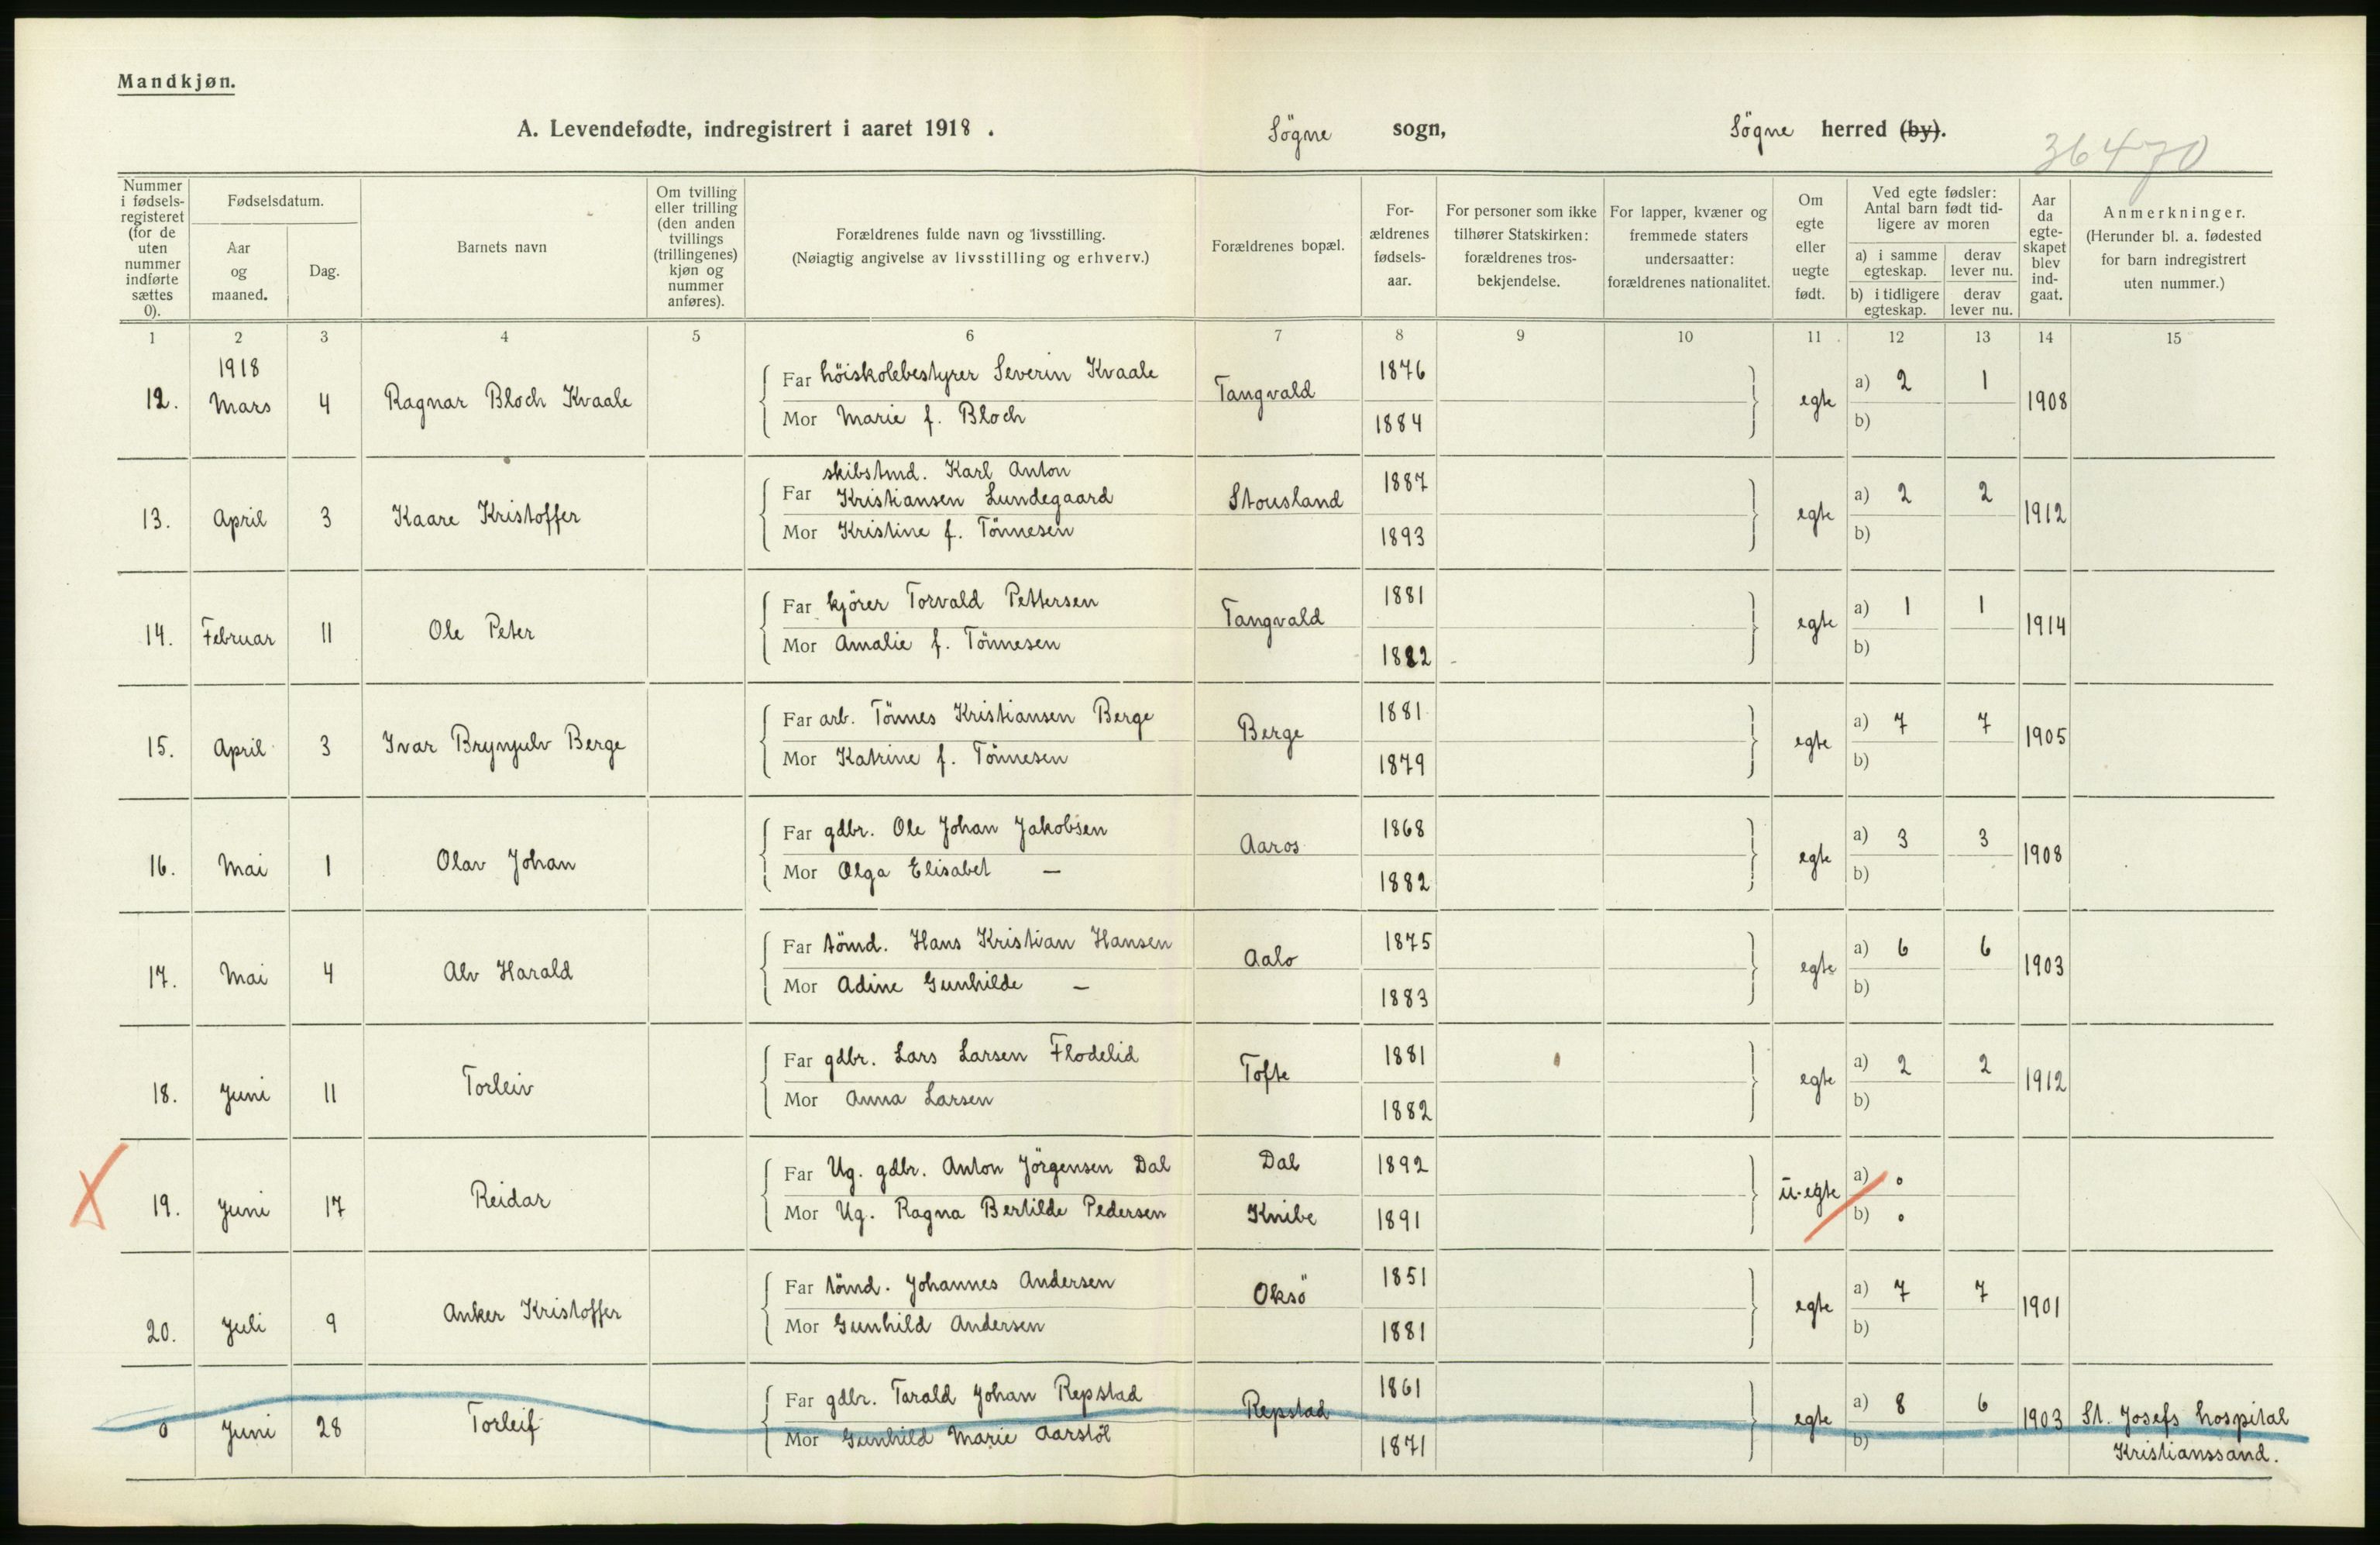 Mandkjøn.
A. Levendefødte, indregistrert i aaret 1918. Søgne sogn, Søgne herred (by).
36470
Nummer i fødsels-registeret (for de uten nummer indførte sættes 0).
Fødselsdatum.
Aar og maaned.
Dag.
Barnets navn
Om tvilling eller trilling (den anden tvillings (trillingenes) kjøn og nummer anføres).
Forældrenes fulde navn og livsstilling.
(Nøiagtig angivelse av livsstilling og erhverv.)
Forældrenes bopæl.
For-ældrenes fødsels-aar.
For personer som ikke tilhører Statskirken: forældrenes tros-bekjendelse.
For lapper, kvæner og fremmede staters undersaatter: forældrenes nationalitet.
Om egte eller uegte født.
Ved egte fødsler: Antal barn født tid-ligere av moren
a) i samme egteskap.
derav lever nu.
b) i tidligere egteskap.
derav lever nu.
Aar da egte-skapet blev ind-gaat.
Anmerkninger.
(Herunder bl. a. fødested for barn indregistrert uten nummer.)
1 2 3 4 5 6 7 8 9 10 11 12 13 14 15
1918
12. Mars 4 Ragnar Bloch Kvaale Far höiskolebestyrer Severin Kvaale Tangvald 1876 egte a) 2 1 1908
Mor Marie f. Bloch 1884 b)
13. April 3 Kaare Kristoffer Far skibstmd. Karl Anton
Kristiansen Lundegaard Stousland 1887 egte a) 2 2 1912
Mor Kristine f. Tönnesen 1893 b)
14. Februar 11 Ole Peter Far kjörer Torvald Pettersen Tangvald 1881 egte a) 1 1 1914
Mor Amalie f. Tönnesen 1882 b)
15. April 3 Ivar Brynjulv Berge Far arb. Tönnes Kristiansen Berge Berge 1881 egte a) 7 7 1905
Mor Katrine f. Tönnesen 1879 b)
16. Mai 1 Olav Johan Far gdbr. Ole Johan Jakobsen Aaros 1868 egte a) 3 3 1908
Mor Olga Elisabet — 1882 b)
17. Mai 4 Alv Harald Far tömd. Hans Kristian Hansen Aalo 1875 egte a) 6 6 1903
Mor Adine Gunhilde — 1883 b)
18. Juni 11 Torleiv Far gdbr. Lars Larsen Flodelid Tofte 1881 egte a) 2 2 1912
Mor Anna Larsen 1882 b)
19. Juni 17 Reidar Far Ug. gdbr. Anton Jörgensen Dal Dal 1892 u-egte a) 0
Mor Ug. Ragna Bertilde Pedersen Knibe 1891 b) 0
20. Juli 9 Anker Kristoffer Far tömd. Johannes Andersen Oksö 1851 egte a) 7 7 1901
Mor Gunhild Andersen 1881 b)
0 Juni 28 Torleif Far gdbr. Tarald Johan Repstad Repstad 1861 egte a) 8 6 1903 St. Josefs hospital
Mor Gunhild Marie Aarstöl 1871 b) Kristianssand.